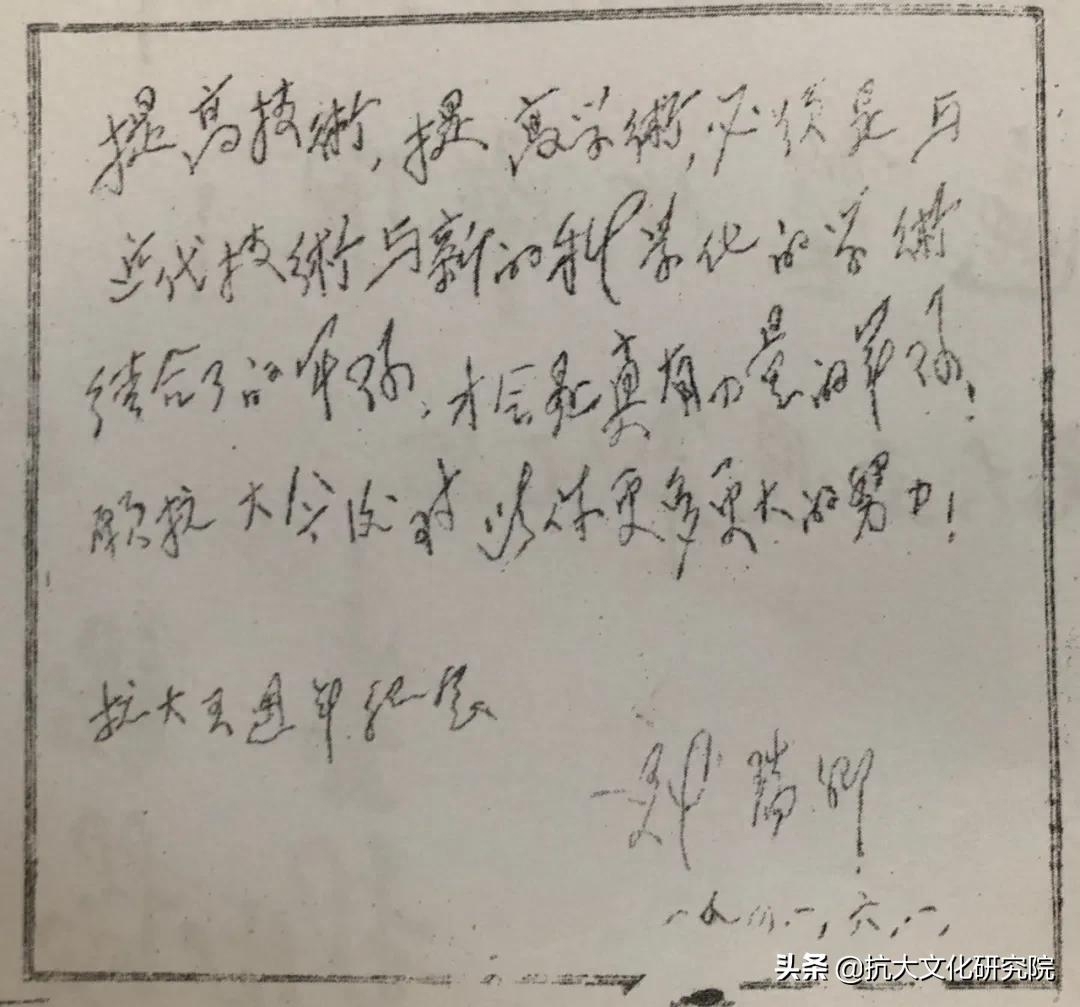 提高技術，提高学術，必须是与
近代技術与新的科学化的学術
结合了的军队，才会是真有力量的军队！
願抗大今后对此作更多更大的努力！
抗大五週年纪念
瑞卿
一九四一，六，一，
头条 @抗大文化研究院